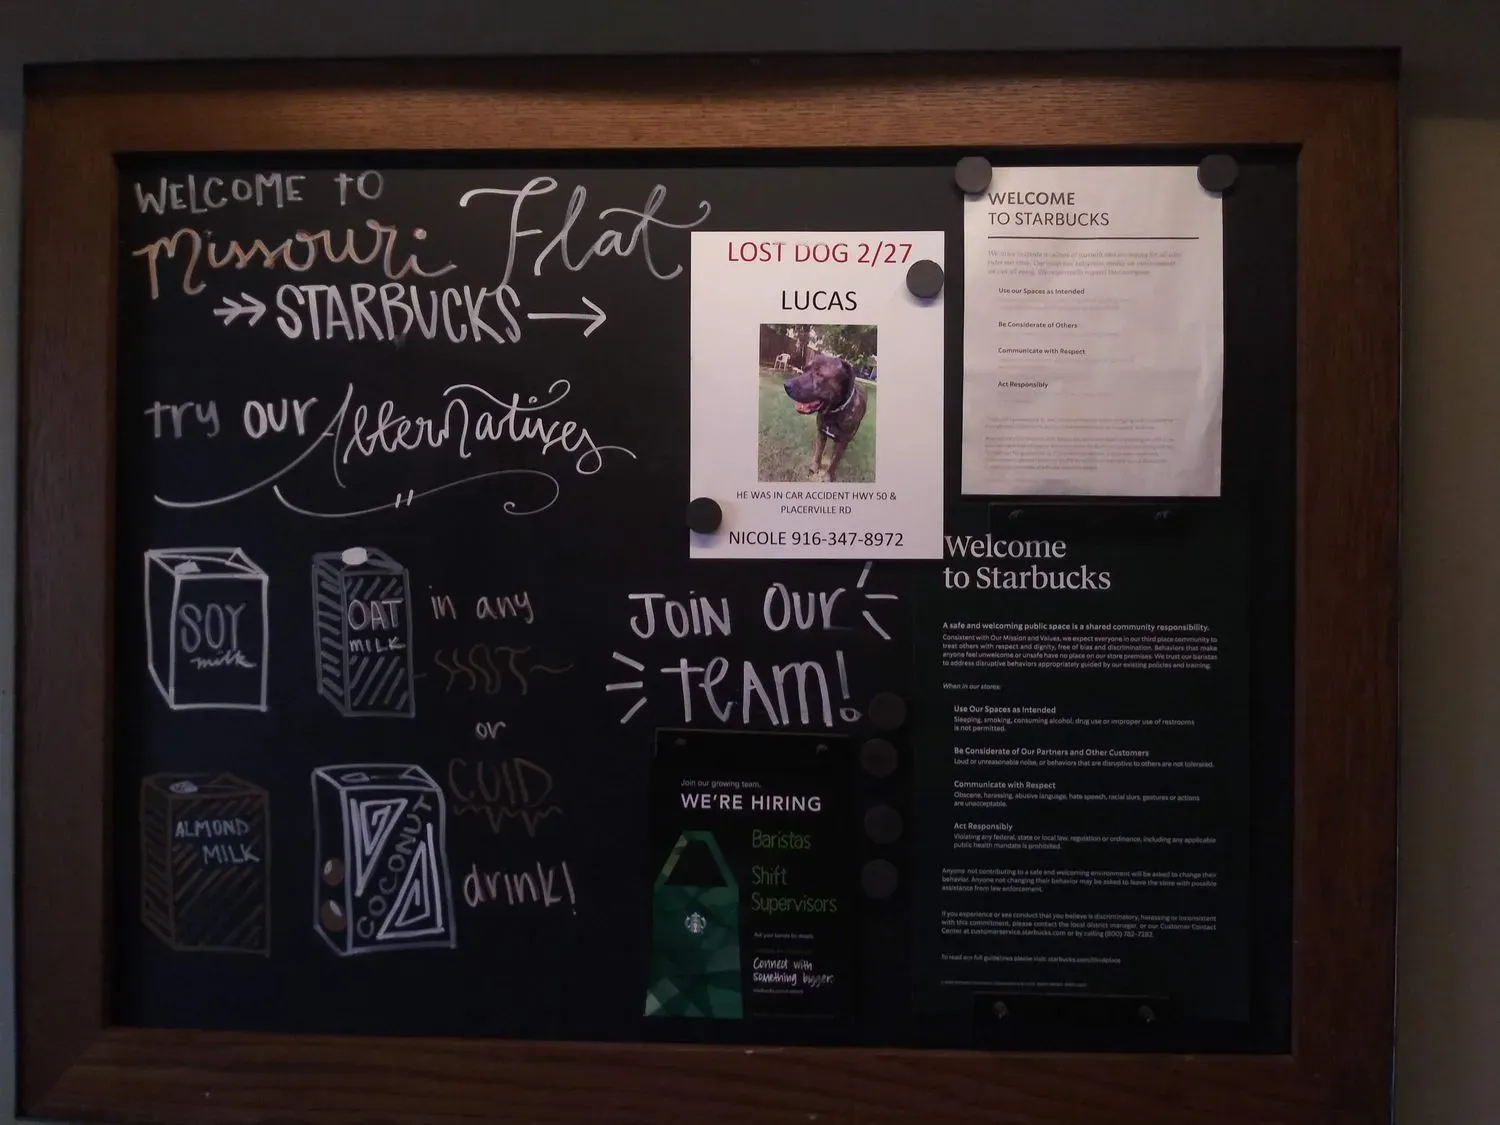 WELCOME TO
Missouri Flat
STARBUCKS
try our Alternatives
SOY
milk
OAT
MILK
in any
HOT
or
COLD
drink!
ALMOND
MILK
COCONUT
LOST DOG 2/27
LUCAS
HE WAS IN CAR ACCIDENT HWY 50 &
PLACERVILLE RD
NICOLE 916-347-8972
JOIN OUR
TEAM!
Join our growing team.
WE'RE HIRING
Baristas
Shift
Supervisors
Connect with
something bigger.
WELCOME
TO STARBUCKS
Use our Spaces as Intended
Be Considerate of Others
Communicate with Respect
Act Responsibly
Welcome
to Starbucks
A safe and welcoming public space is a shared community responsibility.
Consistent with Our Mission and Values, we expect everyone in our third place community to
treat others with respect and dignity, free of bias and discrimination. Behaviors that make
anyone feel unwelcome or unsafe have no place on our store premises. We trust our baristas
to address disruptive behaviors appropriately guided by our existing policies and training.
When in our stores:
Use Our Spaces as Intended
Sleeping, smoking, consuming alcohol, drug use or improper use of restrooms
is not permitted.
Be Considerate of Our Partners and Other Customers
Loud or unreasonable noise, or behaviors that are disruptive to others are not tolerated.
Communicate with Respect
Obscene, harassing, abusive language, hate speech, racial slurs, gestures or actions
are unacceptable.
Act Responsibly
Violating any federal, state or local law, regulation or ordinance, including any applicable
public health mandate is prohibited.
Anyone not contributing to a safe and welcoming environment will be asked to change their
behavior. Anyone not changing their behavior may be asked to leave the store with possible
assistance from law enforcement.
If you experience or see conduct that you believe is discriminatory, harassing or inconsistent
with this commitment, please contact the local district manager, or our Customer Contact
Center at customerservice.starbucks.com or by calling (800) 782-7282.
To read our full guidelines please visit: starbucks.com/thirdplace